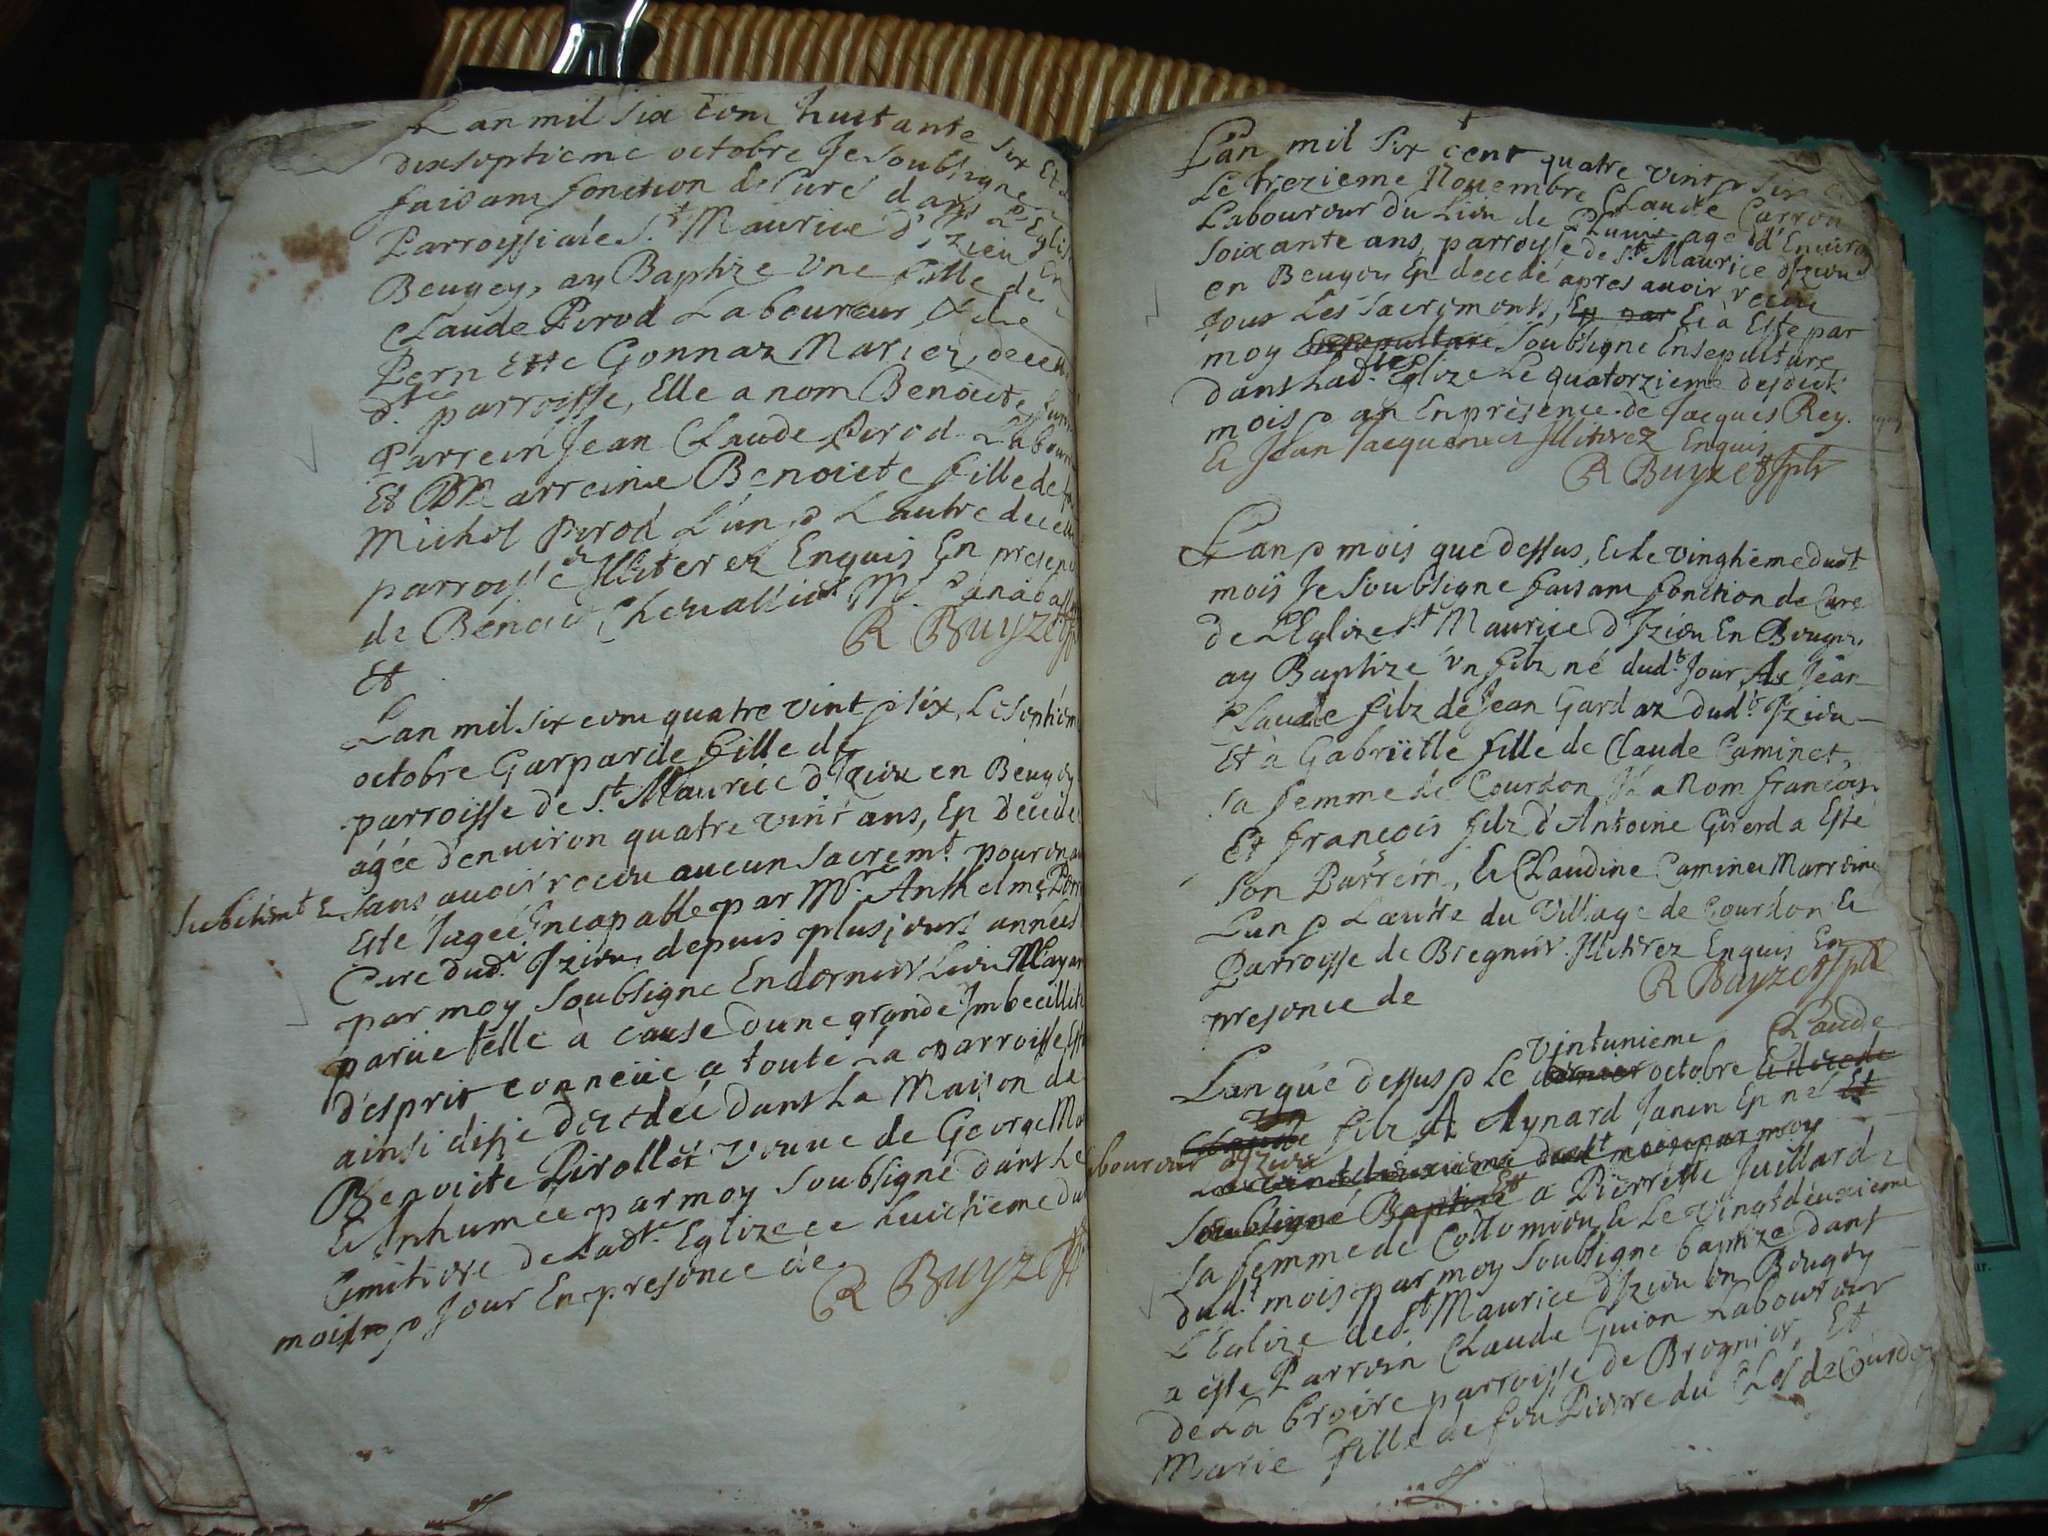 Lan mil six cent huitante six Et
dixseptieme octobre Je Soubsigne
faisant fonction de Curé dans L'Eglise
Parroissiale St Maurice d'Izieu En
Beugey, ay Baptize Une fille de
Claude Perod Laboureur & de
Pernette Gonnaz Mariez de cette
dte parroisse, Elle a nom Benoite
Parrein Jean Claude Perod Labour
Et Marreine Benoicte fille de
Michel Perod L'un & L'autre de cette
parroysse Illiterez Enquis En presen
de Benoid Chevallier
R Buyzet
Et
Lan mil six cent quatre vint & six, Le septiem
octobre Gasparde fille de
parroisse de St Maurice d'Izieu en Beugey
agée d'environ quatre vint ans, En Decede
subitemt & sans avoir receu aucun sacremt pour en avoir
Esté Jugée Incapable par Mre Anthelme
Cure dudt Izieu, depuis plusieurs années
par moy Soubsigne En dernier Lieu
parue telle à cause d'une grande Imbecillité
d'esprit conneüe a toute La parroisse, Est
ainsi disje decedée dans La Maison de
Benoicte Pirollet veuve de George
& Inhumée par moy Soubsigné dans Le
Cimitiere de Ladte Eglize ce huictieme du
mois & Jour En presence de
R Buyzet
L'an mil six cent quatre vint & six &
Le trezieme Novembre Claude Carron
Laboureur du Lieu de age d'Environ
soixante ans, parroysse de St Maurice d'Izieu
en Beugey En decedé apres avoir receu
tous Les sacrements, En par Et à Este par
moy Ensepulturé Soubsigne Ensepulture
dans Ladte Eglize Le quatorzieme desdits
mois & an En presence de Jacques Rey
& Jean Jacquemet Illiterez Enquis
R Buyzet
L'an & mois que dessus, & Le vingtieme dudt
mois Je Soubsigne faisant fonction de Cure
de L'Eglize St Maurice d'Izieu En Beugey,
ay Baptize Un filz né dudt Jour, A Jean
Claude filz de Jean Gardaz dudt Izieu
Et à Gabrielle fille de Claude Caminet,
sa femme de Courdon Il a Nom francois
Et francois filz d'Antoine Girerd a Esté
son Parrein, & Claudine Caminet Marreine
L'un & L'autre du Village de Courdon &
Parroysse de Bregnier Illiterez Enquis En
presence de
R Buyzet
Vintunieme Claude
L'an que dessus & Le dernier octobre
Un
Claude filz A Aynard Janin En né Et
laboureur d'Izieu
Le vint deuxieme dudt mois par moy
Soubsigné Baptizé Et a Pierrette Juillard
sa femme de Collomieu & Le Vingtdeuxieme
dudt mois par moy Soubsigne baptize dans
L'Eglize de St Maurice d'Izieu en Beugey
a este Parrein Claude Guion Laboureur
de La bruire parroisse de Bregnier, Et
Marie fille de feu Pierre du Clos de Courdon